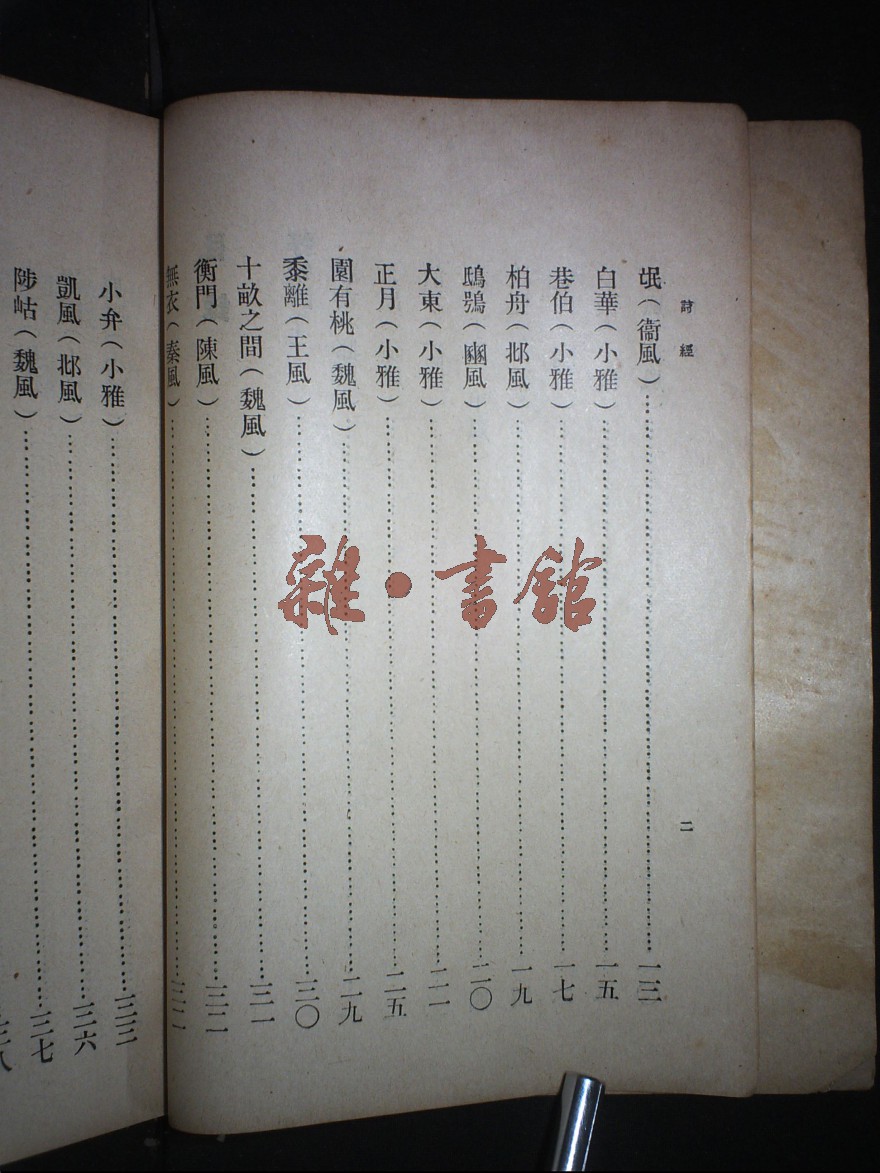 詩經
二
氓(衞風)……一三
白華(小雅)……一五
巷伯(小雅)……一七
柏舟(邶風)……一九
鴟鴞(豳風)……二〇
大東(小雅)……二一
正月(小雅)……二五
園有桃(魏風)……二九
黍離(王風)……三〇
十畝之間(魏風)……三一
衡門(陳風)……三二
無衣(秦風)……三二
小弁(小雅)……三三
凱風(邶風)……三六
陟岵(魏風)……三七
三八
雜·書館